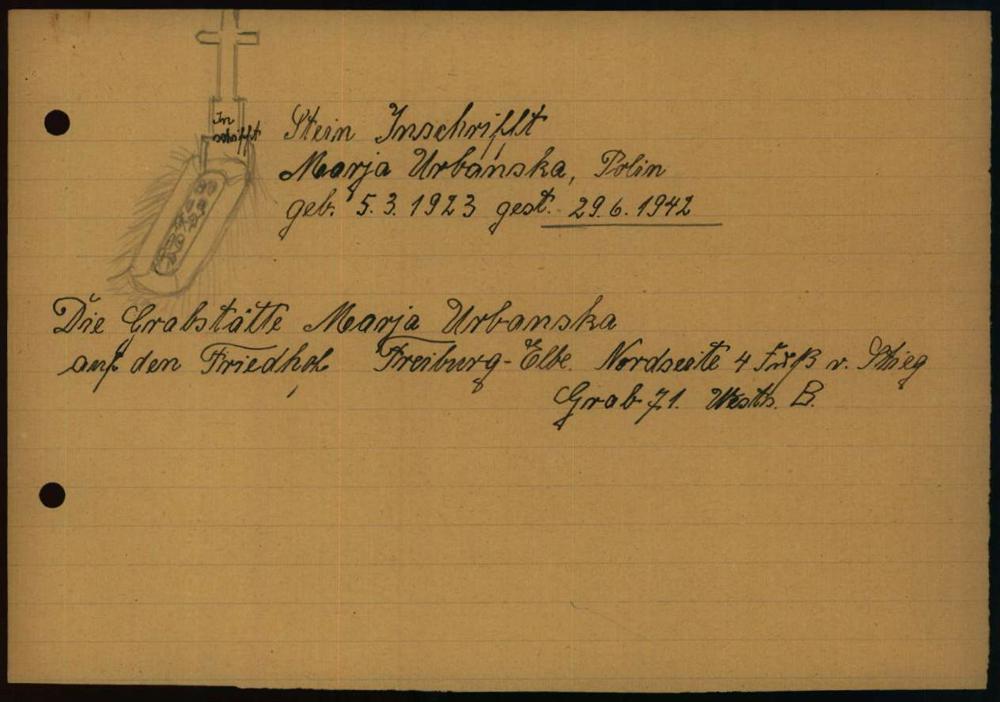 In
schrifft
Stein Inschrifft
Marja Urbanska, Polin
geb. 5.3.1923 gest. 29.6.1942
Die Grabstätte Marja Urbanska
auf den Friedhof Freiburg-Elbe. Nordseite 4 Fuß v. Stieg
Grab 71. B.